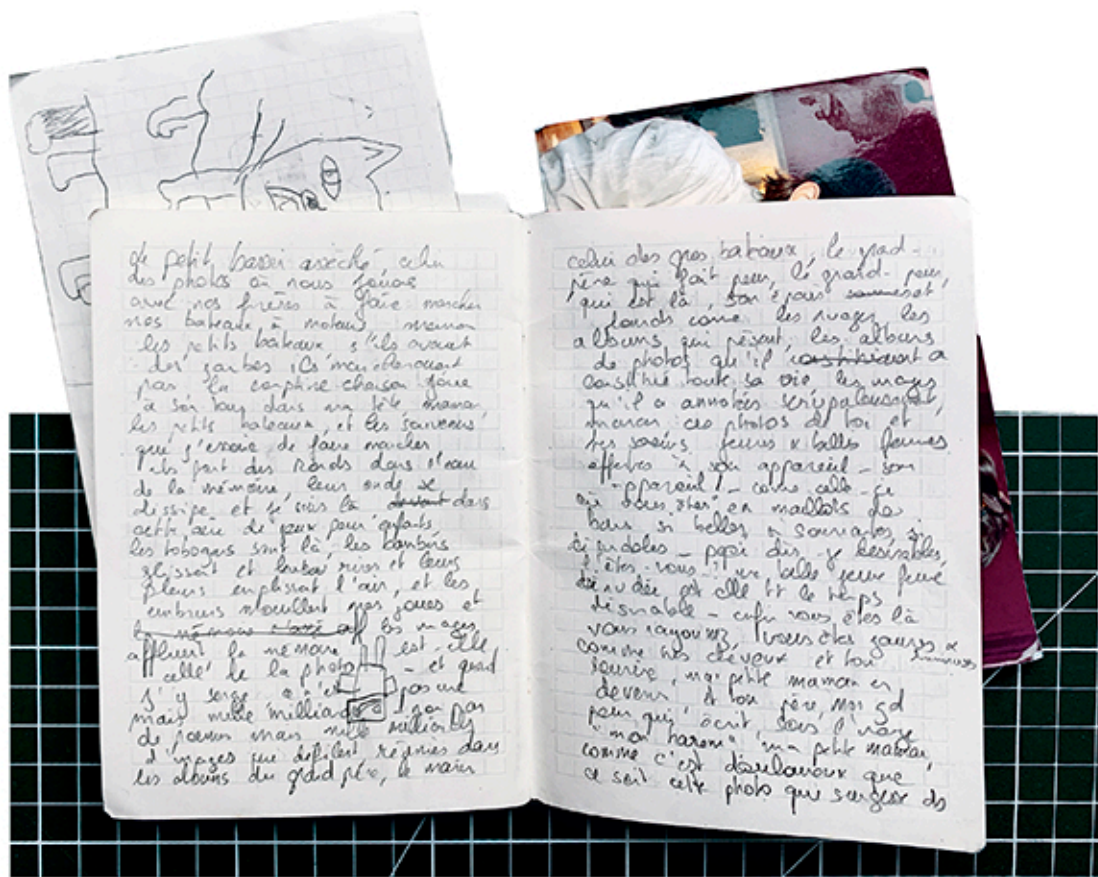 le petit bassin asséché, celui
des photos où nous jouions
avec nos frères à faire marcher
nos bateaux à moteur, maman
les petits bateaux s'ils avaient
des jambes, ils marcheraient
pas la comptine chanson joue
à son tour dans ma tête maman,
les petits bateaux, et les souvenirs
que j'essaie de faire marcher
ils font des ronds dans l'eau
de la mémoire, leur onde se
dissipe et je suis là devant dans
cette aire de jeux pour enfants
les tobogans sont là, les bambins
glissent et leurs rires et leurs
pleurs emplissent l'air, et les
embruns mouillent mes joues et
la mémoire les images
affluent la mémoire est-elle
celle de la photo – et quand
j'y songe a n'est pas une
mais mille milliards
de poèmes mais mille milliards
d'images qui défilent régnées dans
les albums du grand père, le marin
celui des gros bateaux, le grand-
père qui fait peur, le grand-père,
qui est là, son épais
lourds comme les nuages les
albums qui pèsent, les albums
de photos qu'il constituaient a
constitué toute sa vie, les images
qu'il a annotées scrupuleusement,
maman ces photos de toi et
tes soeurs jeunes et belles femmes
offertes à son appareil – son
appareil ! – comme celle-ce
où vous êtes en maillots de
bain si belles si souriantes si
– papa dis-je désirables,
l'êtes-vous une belle jeune femme
dénudée est elle tt le temps
désirable – enfin vous êtes là
vous rayonnez, vous êtes jaunes &
comme tes cheveux et ton lumineuses
sourire, ma petite maman en
devenir et ton père, mon gd
père qui écrit sous l'image
"mon harem" ma petite maman,
comme c'est douloureux que
ce soit cette photo qui surgisse ds